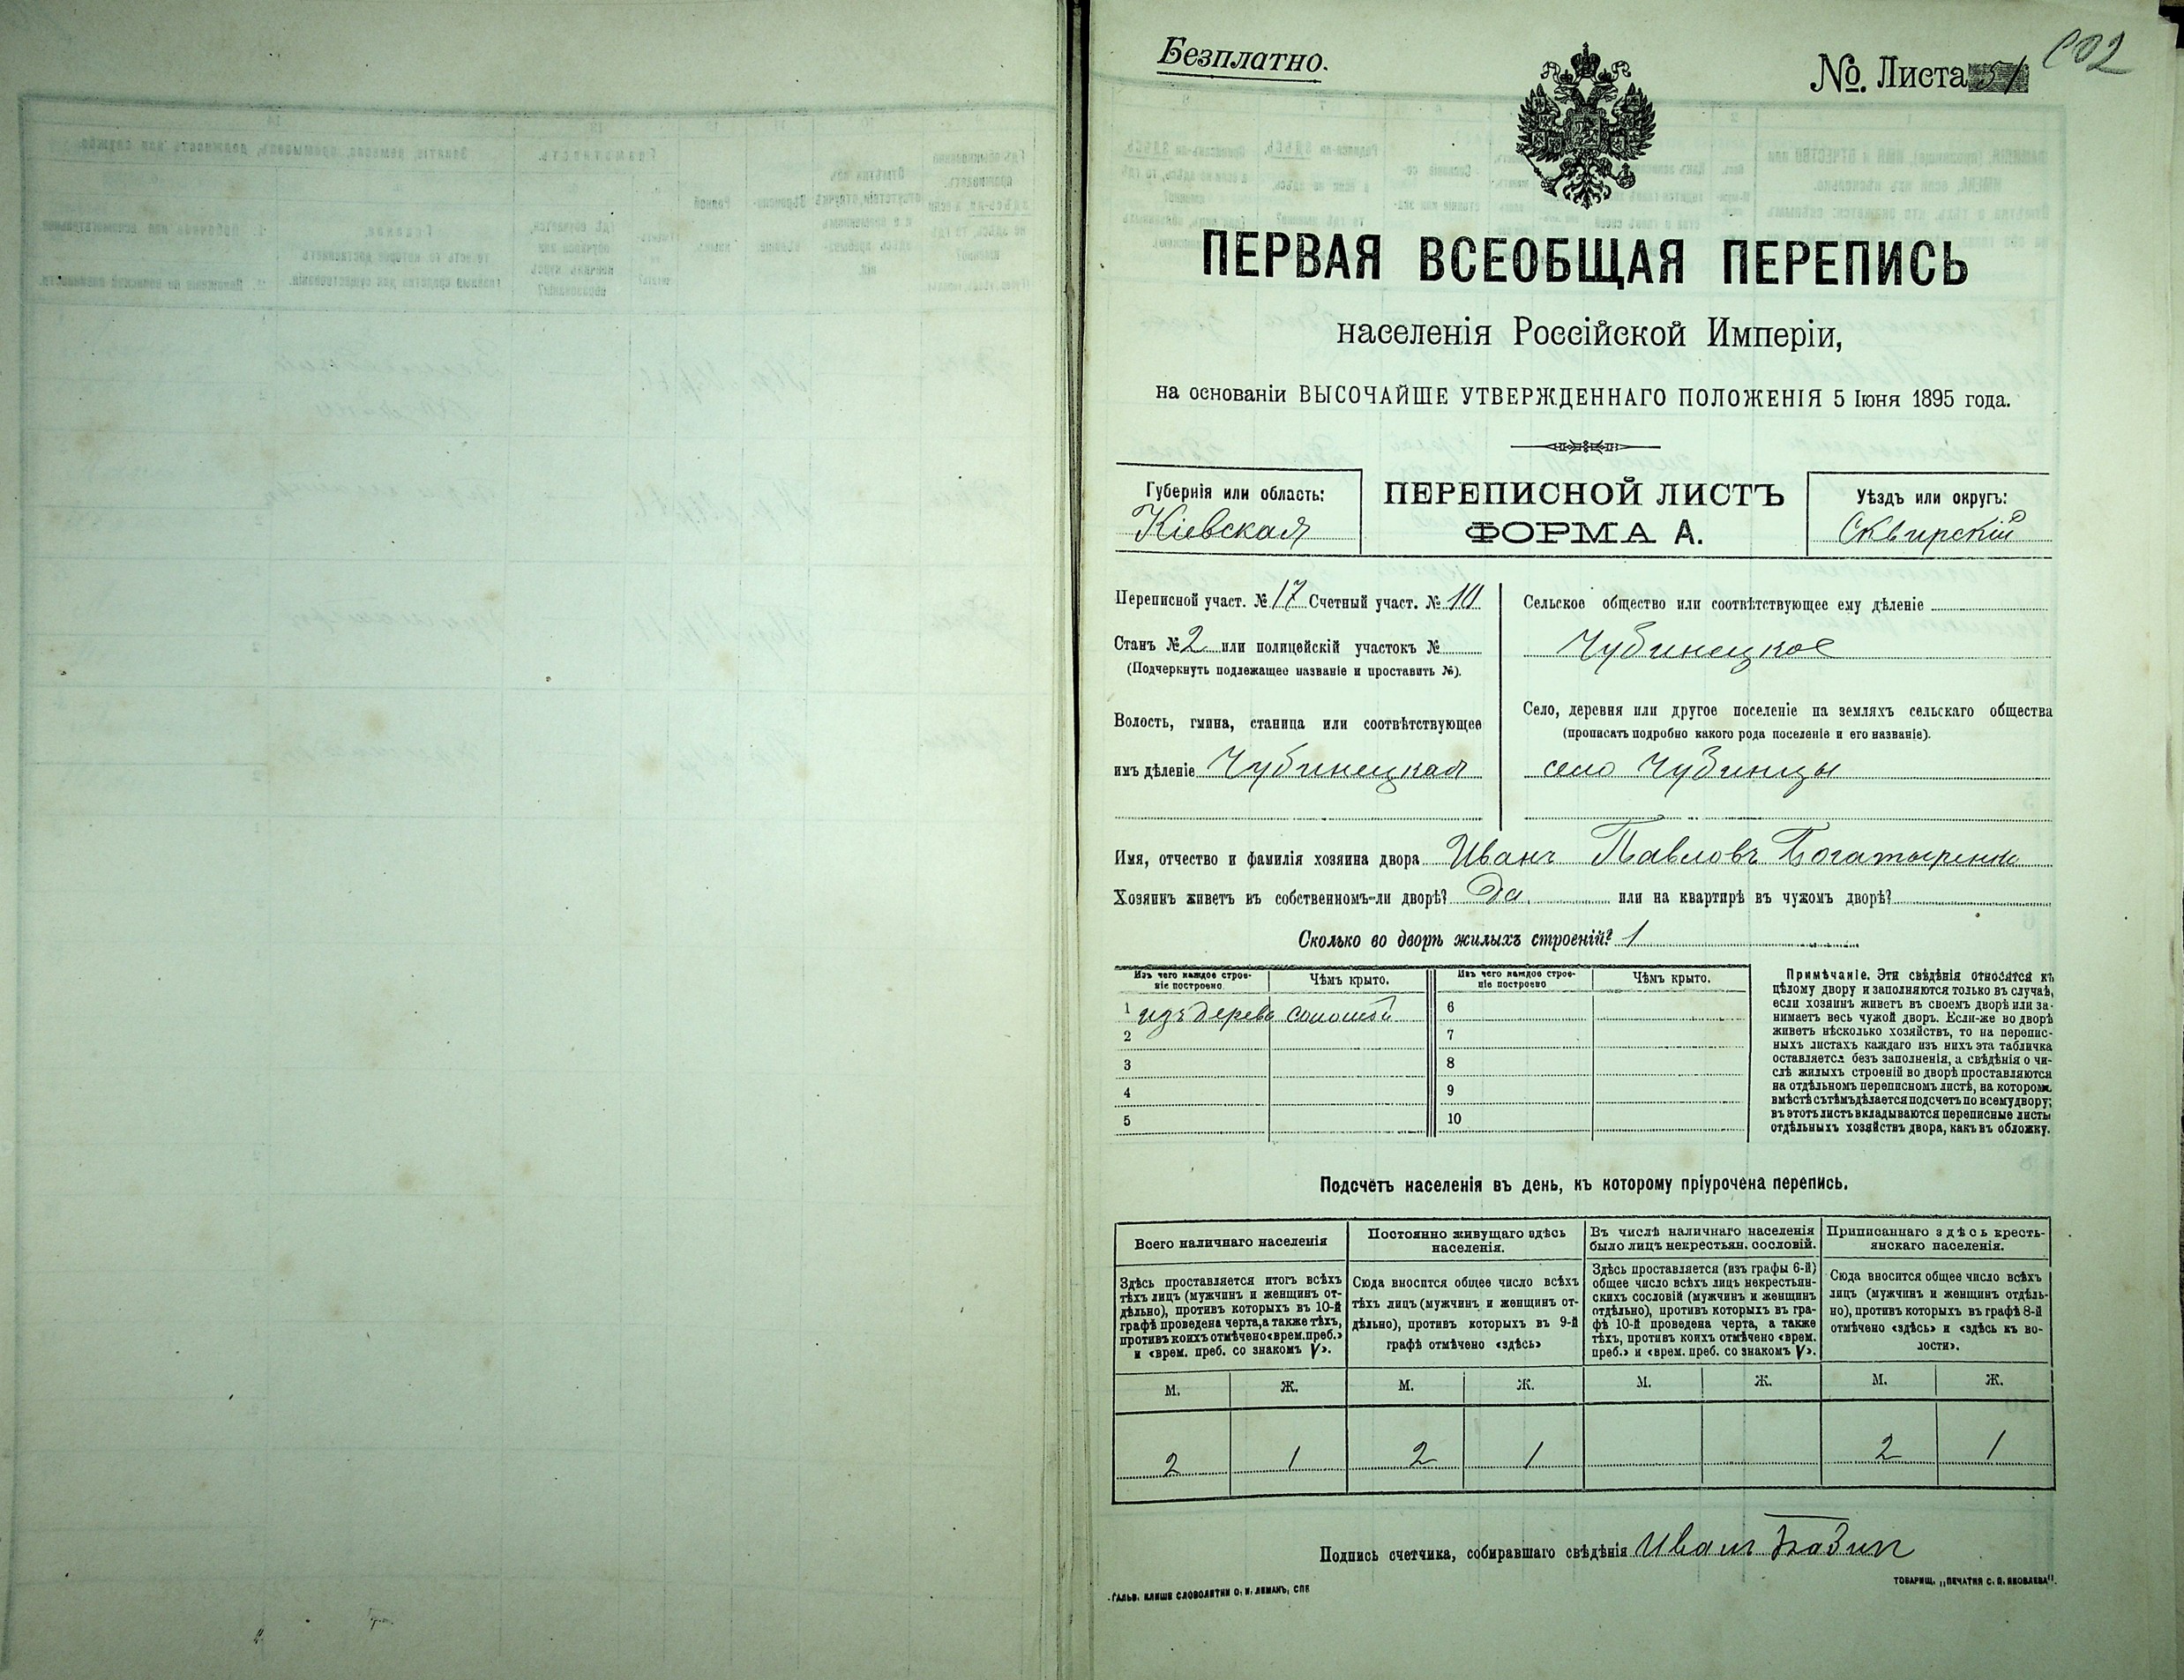 Безплатно.
№. Листа 51
ПЕРВАЯ ВСЕОБЩАЯ ПЕРЕПИСЬ
населенія Россійской Имперіи,
на основаніи ВЫСОЧАЙШЕ УТВЕРЖДЕННАГО ПОЛОЖЕНІЯ 5 Іюня 1895 года.
Губернія или область:
Кіевская
ПЕРЕПИСНОЙ ЛИСТЪ
ФОРМА А.
Уѣздъ или округъ:
Сквирскій
Переписной участ. № 17 Счетный участ. № 10
Станъ № 2 или полицейскій участокъ №
(Подчеркнуть подлежащее названіе и проставить №).
Волость, гмина, станица или соотвѣтствующее
имъ дѣленіе Чубинецкая
Сельское общество или соотвѣтствующее ему дѣленіе
Чубинецкое
Село, деревня или другое поселеніе на земляхъ сельскаго общества
(прописать подробно какого рода поселеніе и его названіе).
село Чубинцы
Имя, отчество и фамилія хозяина двора Иванъ Павловъ Богатыренко
Хозяинъ живетъ въ собственномъ-ли дворѣ? Да или на квартирѣ въ чужомъ дворѣ?
Сколько во дворѣ жилыхъ строеній? 1
Изъ чего каждое строе-
ніе построено
Чѣмъ крыто.
Изъ чего каждое строе-
ніе построено
Чѣмъ крыто.
1 изъ дерева соломой
2
3
4
5
6
7
8
9
10
Примѣчаніе. Эти свѣдѣнія относятся къ
цѣлому двору и заполняются только въ случаѣ,
если хозяинъ живетъ въ своемъ дворѣ или за-
нимаетъ весь чужой дворъ. Если-же во дворѣ
живетъ нѣсколько хозяйствъ, то на перепис-
ныхъ листахъ каждаго изъ нихъ эта табличка
оставляется безъ заполненія, а свѣдѣнія о чи-
слѣ жилыхъ строеній во дворѣ проставляются
на отдѣльномъ переписномъ листѣ, на которомъ
вмѣстѣ съ тѣмъ дѣлается подсчетъ по всему двору;
въ этотъ листъ вкладываются переписные листы
отдѣльныхъ хозяйствъ двора, какъ въ обложку.
Подсчетъ населенія въ день, къ которому пріурочена перепись.
Всего наличнаго населенія
Здѣсь проставляется итогъ всѣхъ
тѣхъ лицъ (мужчинъ и женщинъ от-
дѣльно), противъ которыхъ въ 10-й
графѣ проведена черта, а также тѣхъ,
противъ коихъ отмѣчено «врем. преб.»
и «врем. преб. со знакомъ V».
Постоянно живущаго здѣсь
населенія.
Сюда вносится общее число всѣхъ
тѣхъ лицъ (мужчинъ и женщинъ от-
дѣльно), противъ которыхъ въ 9-й
графѣ отмѣчено «здѣсь»
Въ числѣ наличнаго населенія
было лицъ некрестьян. сословій.
Здѣсь проставляется (изъ графы 6-й)
общее число всѣхъ лицъ некрестьян-
скихъ сословій (мужчинъ и женщинъ
отдѣльно), противъ которыхъ въ гра-
фѣ 10-й проведена черта, а также
тѣхъ, противъ коихъ отмѣчено «врем.
преб.» и «врем. преб. со знакомъ V».
Приписаннаго здѣсь кресть-
янскаго населенія.
Сюда вносится общее число всѣхъ
лицъ (мужчинъ и женщинъ отдѣль-
но), противъ которыхъ въ графѣ 8-й
отмѣчено «здѣсь» и «здѣсь къ во-
лости».
М. Ж. М. Ж. М. Ж. М. Ж.
2 1 2 1 2 1
Подпись счетчика, собиравшаго свѣдѣнія Иванъ
ГАЛЬВ. КЛИШЕ СЛОВОЛИТНИ О. И. ЛЕМАНЪ, СПБ
ТОВАРИЩ. „ПЕЧАТНЯ С. П. ЯКОВЛЕВА".